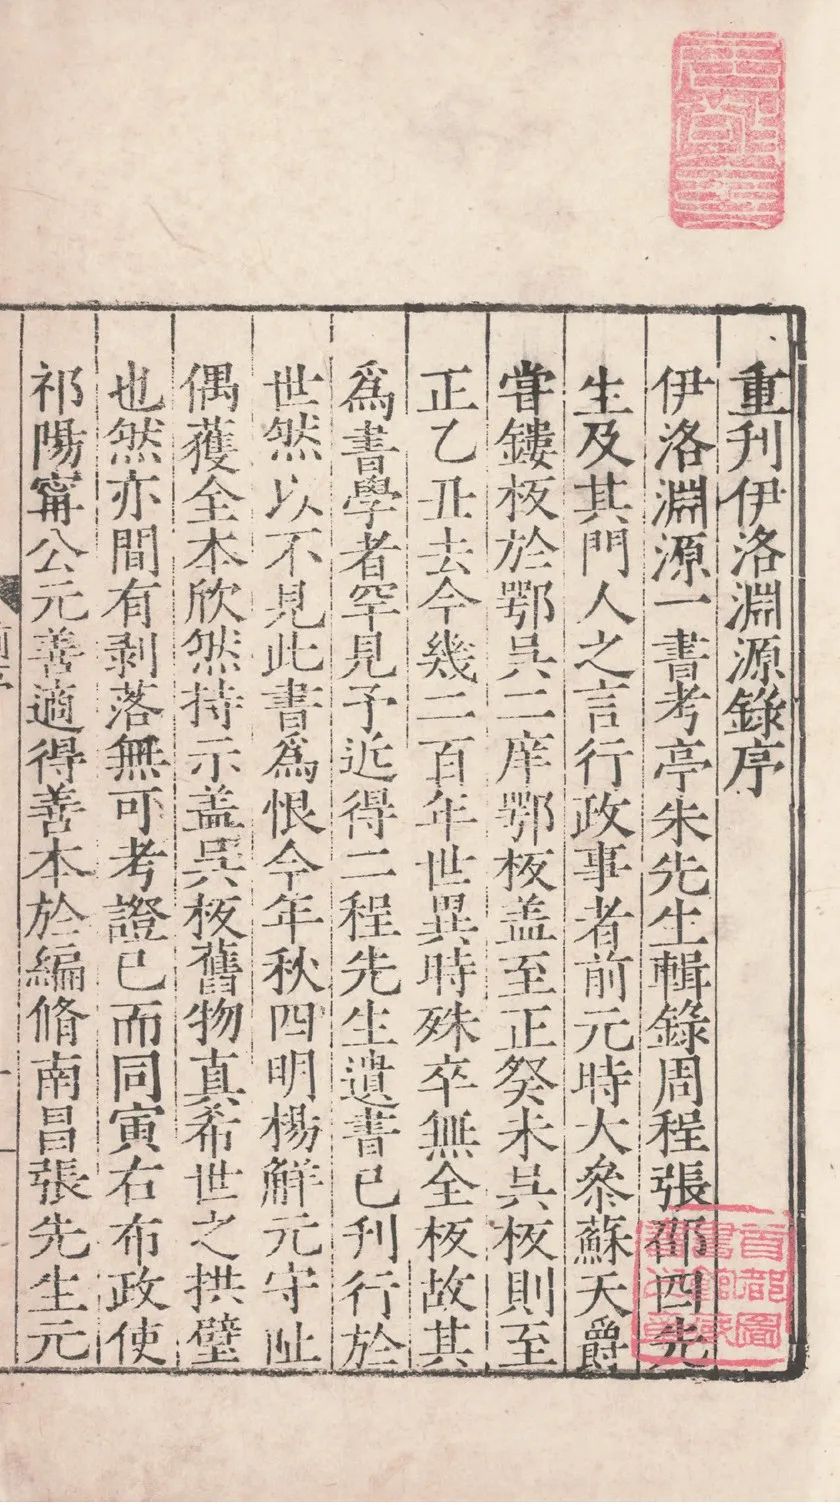 重刊伊洛淵源錄序
伊洛淵源一書考亭朱先生輯錄周程張邵四先
生及其門人之言行政事者前元時大叅蘇天爵
嘗鏤板於鄂吳二庠鄂板盖至正癸未吳板則至
正乙丑去今幾二百年世異時殊卒無全板故其
爲書學者罕見予近得二程先生遺書已刊行於
世然以不見此書爲恨今年秋四明楊觧元守阯
偶獲全本欣然持示盖吳板舊物真希世之拱璧
也然亦間有剥落無可考證已而同寅右布政使
祁陽寗公元善適得善本於編脩南昌張先生元
首都圖
書館藏
書之章